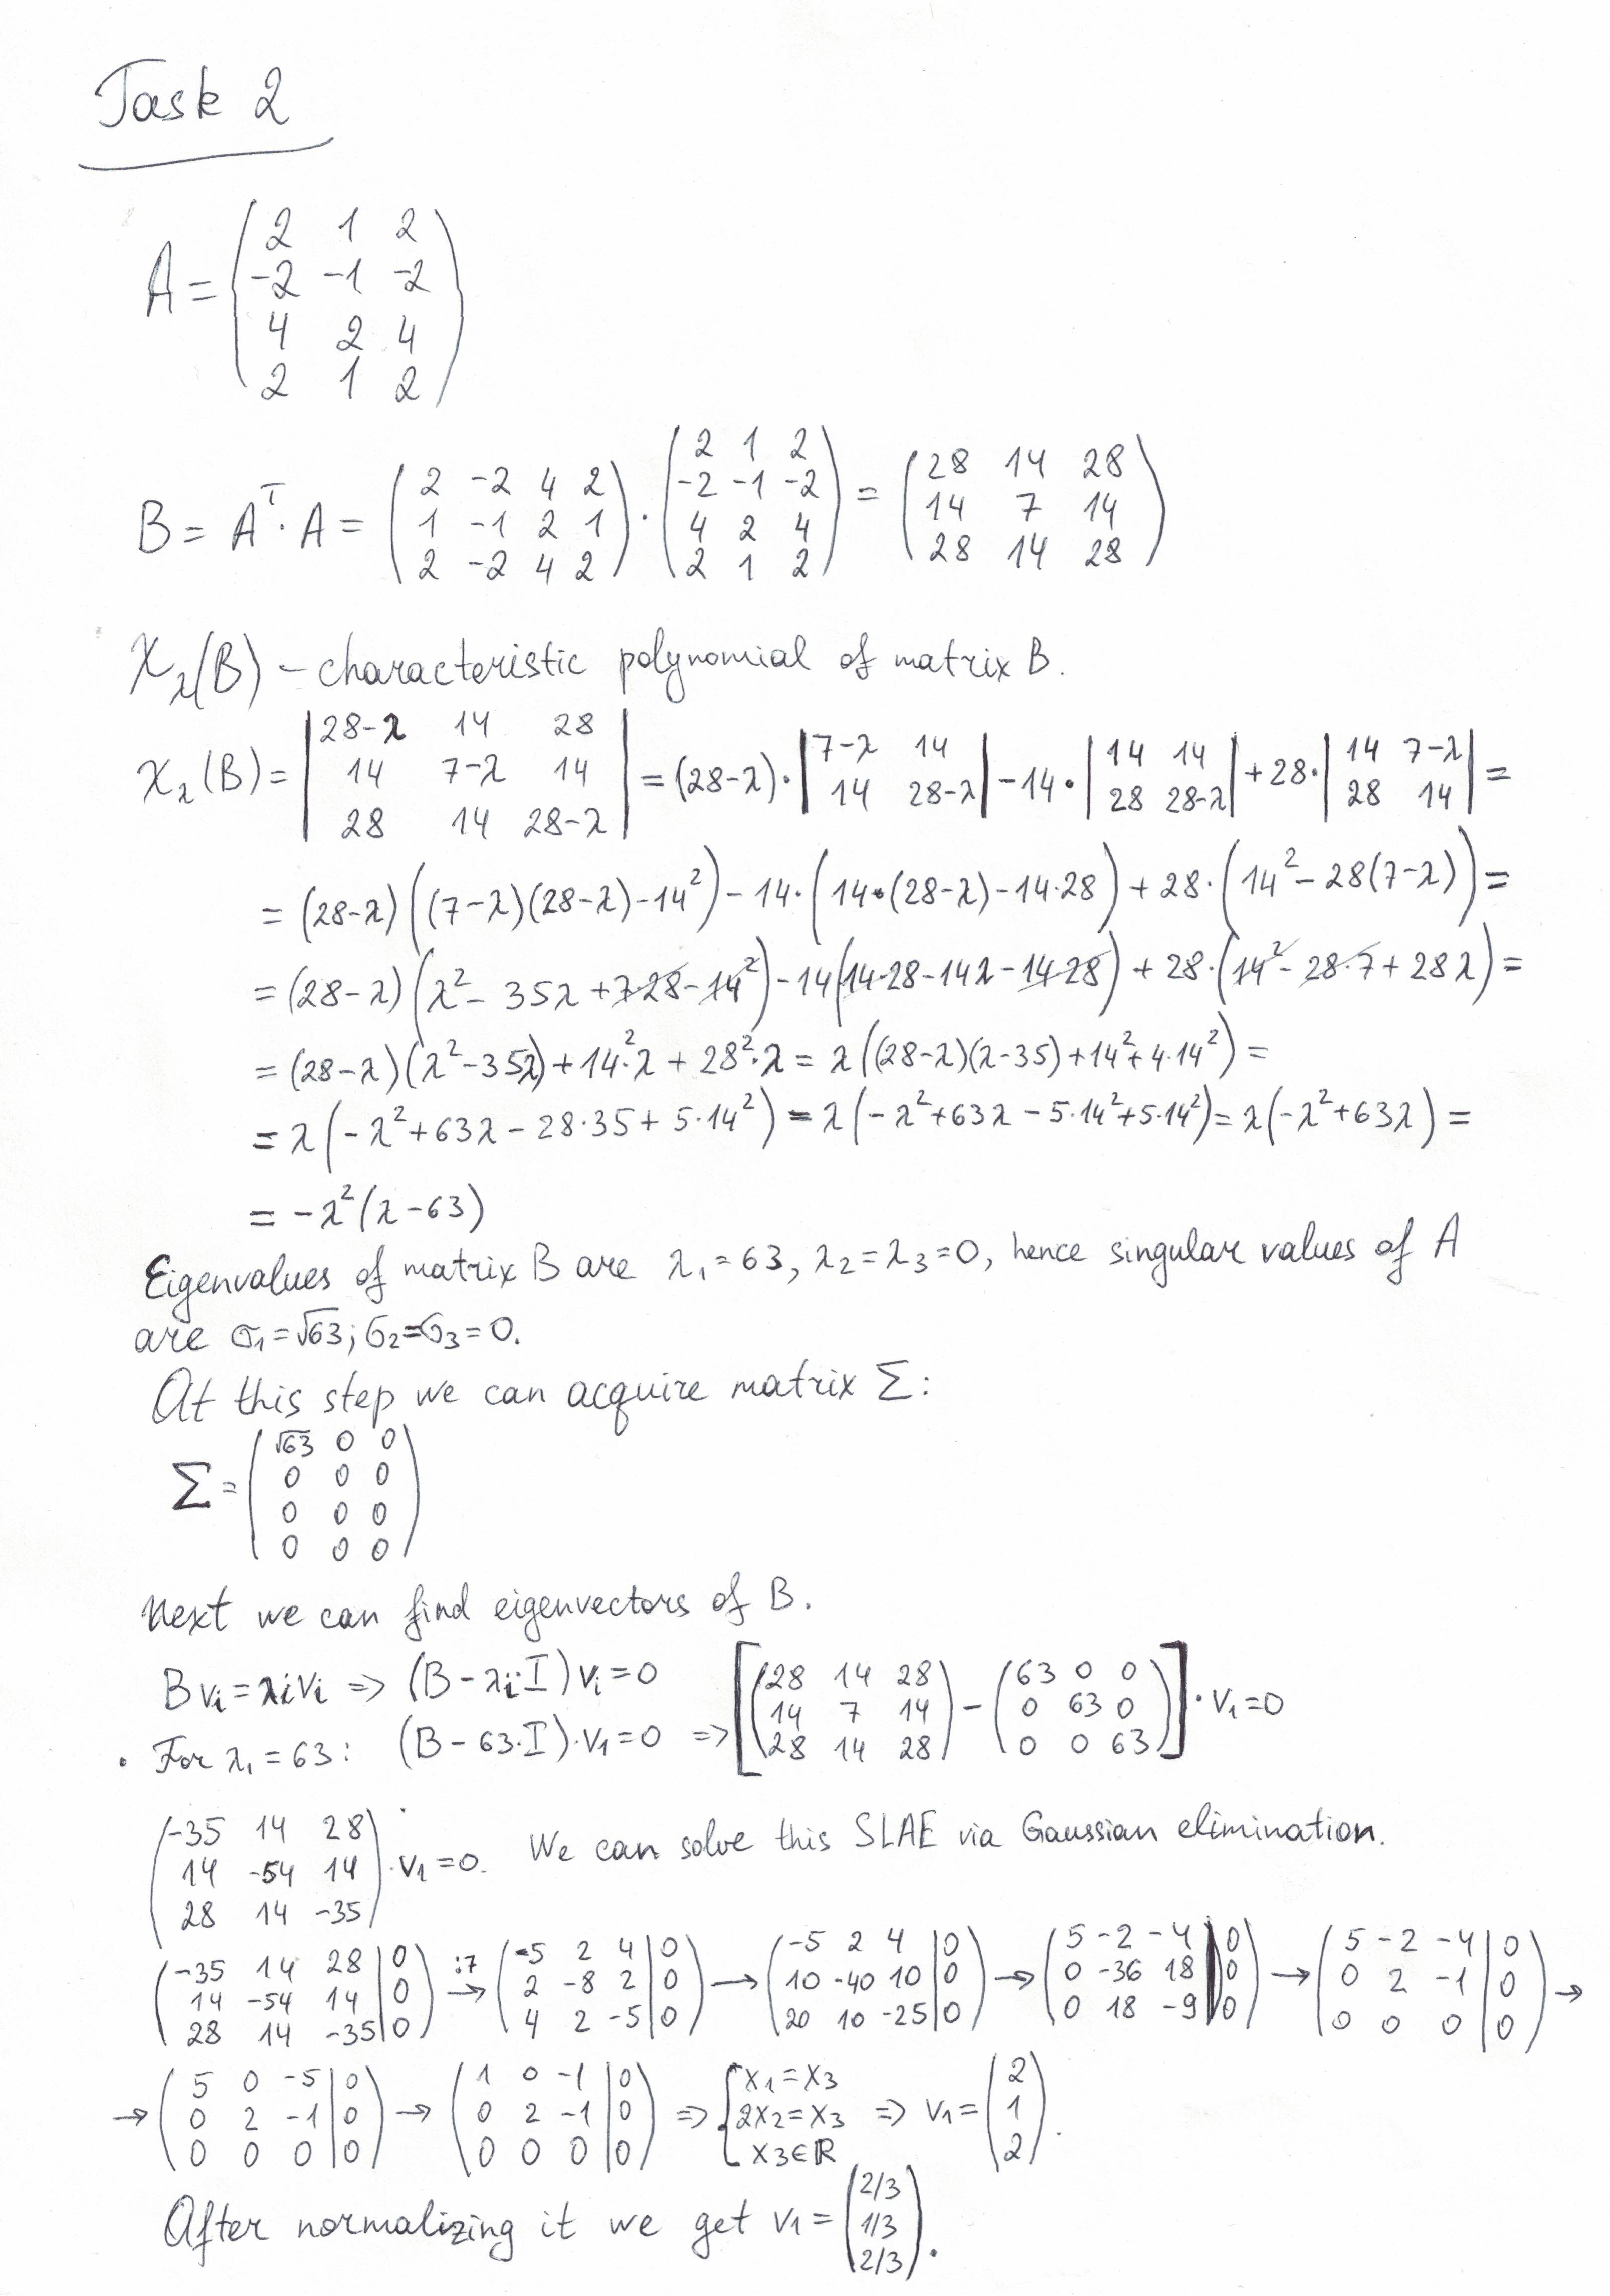 Task 2
A = ( 2 1 2
-2 -1 -2
4 2 4
2 1 2 )
B = Aᵀ · A = ( 2 -2 4 2 ; 1 -1 2 1 ; 2 -2 4 2 ) · ( 2 1 2 ; -2 -1 -2 ; 4 2 4 ; 2 1 2 ) = ( 28 14 28 ; 14 7 14 ; 28 14 28 )
χ_λ(B) – characteristic polynomial of matrix B.
χ_λ(B) = | 28-λ 14 28 ; 14 7-λ 14 ; 28 14 28-λ | = (28-λ) · | 7-λ 14 ; 14 28-λ | - 14 · | 14 14 ; 28 28-λ | + 28 · | 14 7-λ ; 28 14 | =
= (28-λ)((7-λ)(28-λ) - 14²) - 14 · (14 · (28-λ) - 14·28) + 28 · (14² - 28(7-λ)) =
= (28-λ)(λ² - 35λ + 7·28 - 14²) - 14(14·28 - 14λ - 14·28) + 28 · (14² - 28·7 + 28λ) =
= (28-λ)(λ² - 35λ) + 14²·λ + 28²·λ = λ((28-λ)(λ-35) + 14² + 4·14²) =
= λ(-λ² + 63λ - 28·35 + 5·14²) = λ(-λ² + 63λ - 5·14² + 5·14²) = λ(-λ² + 63λ) =
= -λ²(λ-63)
Eigenvalues of matrix B are λ₁ = 63, λ₂ = λ₃ = 0, hence singular values of A
are σ₁ = √63; σ₂ = σ₃ = 0.
At this step we can acquire matrix Σ:
Σ = ( √63 0 0
0 0 0
0 0 0
0 0 0 )
Next we can find eigenvectors of B.
Bvᵢ = λᵢvᵢ => (B - λᵢI)vᵢ = 0
• For λ₁ = 63: (B - 63·I)·v₁ = 0 => [ ( 28 14 28 ; 14 7 14 ; 28 14 28 ) - ( 63 0 0 ; 0 63 0 ; 0 0 63 ) ] · v₁ = 0
( -35 14 28 ; 14 -54 14 ; 28 14 -35 ) · v₁ = 0. We can solve this SLAE via Gaussian elimination.
( -35 14 28 | 0 ; 14 -54 14 | 0 ; 28 14 -35 | 0 ) :7 → ( -5 2 4 | 0 ; 2 -8 2 | 0 ; 4 2 -5 | 0 ) → ( -5 2 4 | 0 ; 10 -40 10 | 0 ; 20 10 -25 | 0 ) → ( 5 -2 -4 | 0 ; 0 -36 18 | 0 ; 0 18 -9 | 0 ) → ( 5 -2 -4 | 0 ; 0 2 -1 | 0 ; 0 0 0 | 0 ) →
→ ( 5 0 -5 | 0 ; 0 2 -1 | 0 ; 0 0 0 | 0 ) → ( 1 0 -1 | 0 ; 0 2 -1 | 0 ; 0 0 0 | 0 ) => { x₁ = x₃ ; 2x₂ = x₃ ; x₃ ∈ ℝ => v₁ = ( 2 ; 1 ; 2 ).
After normalizing it we get v₁ = ( 2/3 ; 1/3 ; 2/3 ).